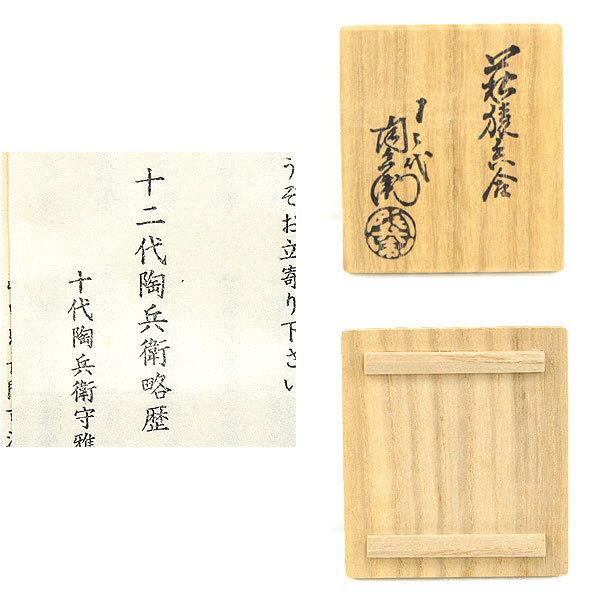 うぞお立寄り下さい
十二代陶兵衛略歴
十代陶兵衛守雅
萩猿香合
十二代
陶兵衛